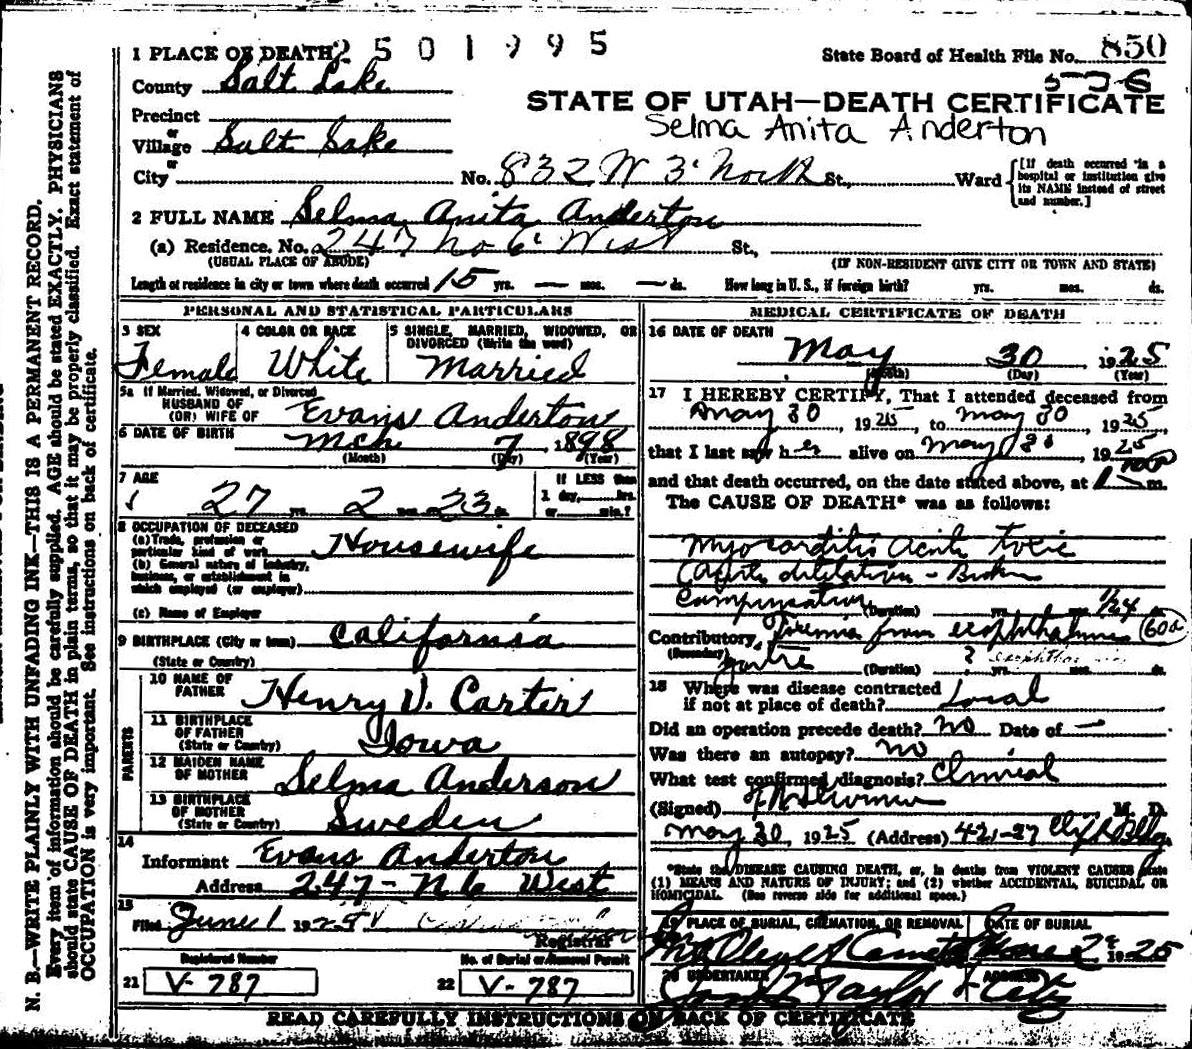 1 PLACE OF DEATH 2501995
State Board of Health File No. 850
County Salt Lake
536
STATE OF UTAH—DEATH CERTIFICATE
Precinct
Selma Anita Anderton
or
Village Salt Lake
or
City No. 832 W 3' North St., Ward
[If death occurred in a hospital or institution give its NAME instead of street and number.]
2 FULL NAME Selma Anita Anderton
(a) Residence. No. 247 No 6' West St.,
(USUAL PLACE OF ABODE) (IF NON-RESIDENT GIVE CITY OR TOWN AND STATE)
Length of residence in city or town where death occurred 15 yrs. — mos. — ds. How long in U. S., if foreign birth? yrs. mos. ds.
PERSONAL AND STATISTICAL PARTICULARS
3 SEX Female
4 COLOR OR RACE White
5 SINGLE, MARRIED, WIDOWED, OR DIVORCED (Write the word) Married
5a If Married, Widowed, or Divorced
HUSBAND OF
(OR) WIFE OF Evans Anderton
6 DATE OF BIRTH Mch 7, 1898
(Month) (Day) (Year)
7 AGE
27 yrs. 2 mos. 23 ds.
If LESS than 1 day, hrs. or min.?
8 OCCUPATION OF DECEASED
(a) Trade, profession or particular kind of work Housewife
(b) General nature of industry, business, or establishment in which employed (or employer)
(c) Name of Employer
9 BIRTHPLACE (City or town) California
(State or Country)
PARENTS
10 NAME OF FATHER Henry V. Carter
11 BIRTHPLACE OF FATHER (State or Country) Iowa
12 MAIDEN NAME OF MOTHER Selma Anderson
13 BIRTHPLACE OF MOTHER (State or Country) Sweden
14
Informant Evans Anderton
Address 247 - N 6 West
15
Filed June 1 1925
Registrar
Registered Number
21 V-787
No. of Burial or Removal Permit
22 V-787
MEDICAL CERTIFICATE OF DEATH
16 DATE OF DEATH
May 30 1925
(Month) (Day) (Year)
17 I HEREBY CERTIFY, That I attended deceased from
May 30 1925, to May 30 1925,
that I last saw her alive on May 30 1925
and that death occurred, on the date stated above, at m.
The CAUSE OF DEATH* was as follows:
Myocarditis Acute toxic
Acute dilitation - Broken
Compensation (Duration) yrs. mos. 1/24 ds.
Contributory from exophthalmic 60a
(Secondary) goitre (Duration) ? yrs. mos. ds.
18 Where was disease contracted
if not at place of death? Local
Did an operation precede death? No Date of —
Was there an autopsy? No
What test confirmed diagnosis? Clinical
(Signed) M. D.
May 30, 1925 (Address) 421-27 Clift Bldg.
*State the DISEASE CAUSING DEATH, or, in deaths from VIOLENT CAUSES state
(1) MEANS AND NATURE OF INJURY; and (2) whether ACCIDENTAL, SUICIDAL OR
HOMICIDAL. (See reverse side for additional space.)
19 PLACE OF BURIAL, CREMATION, OR REMOVAL
Mt Olivet Cemetery
DATE OF BURIAL
June 2 1925
20 UNDERTAKER
Taylor
ADDRESS
City
READ CAREFULLY INSTRUCTIONS ON BACK OF CERTIFICATE
N. B.—WRITE PLAINLY WITH UNFADING INK—THIS IS A PERMANENT RECORD.
Every item of information should be carefully supplied. AGE should be stated EXACTLY. PHYSICIANS
should state CAUSE OF DEATH in plain terms, so that it may be properly classified. Exact statement of
OCCUPATION is very important. See instructions on back of certificate.